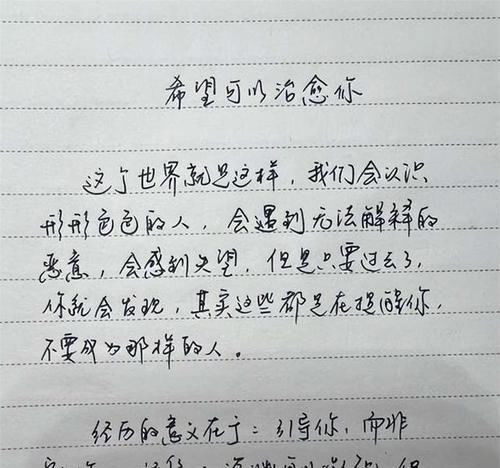 希望可以治愈你
这个世界就是这样，我们会认识
形形色色的人，会遇到无法解释的
恶意，会感到失望，但是只要过去了，
你就会发现，其实这些都是在提醒你，
不要成为那样的人。
经历的意义在于：引导你，而非